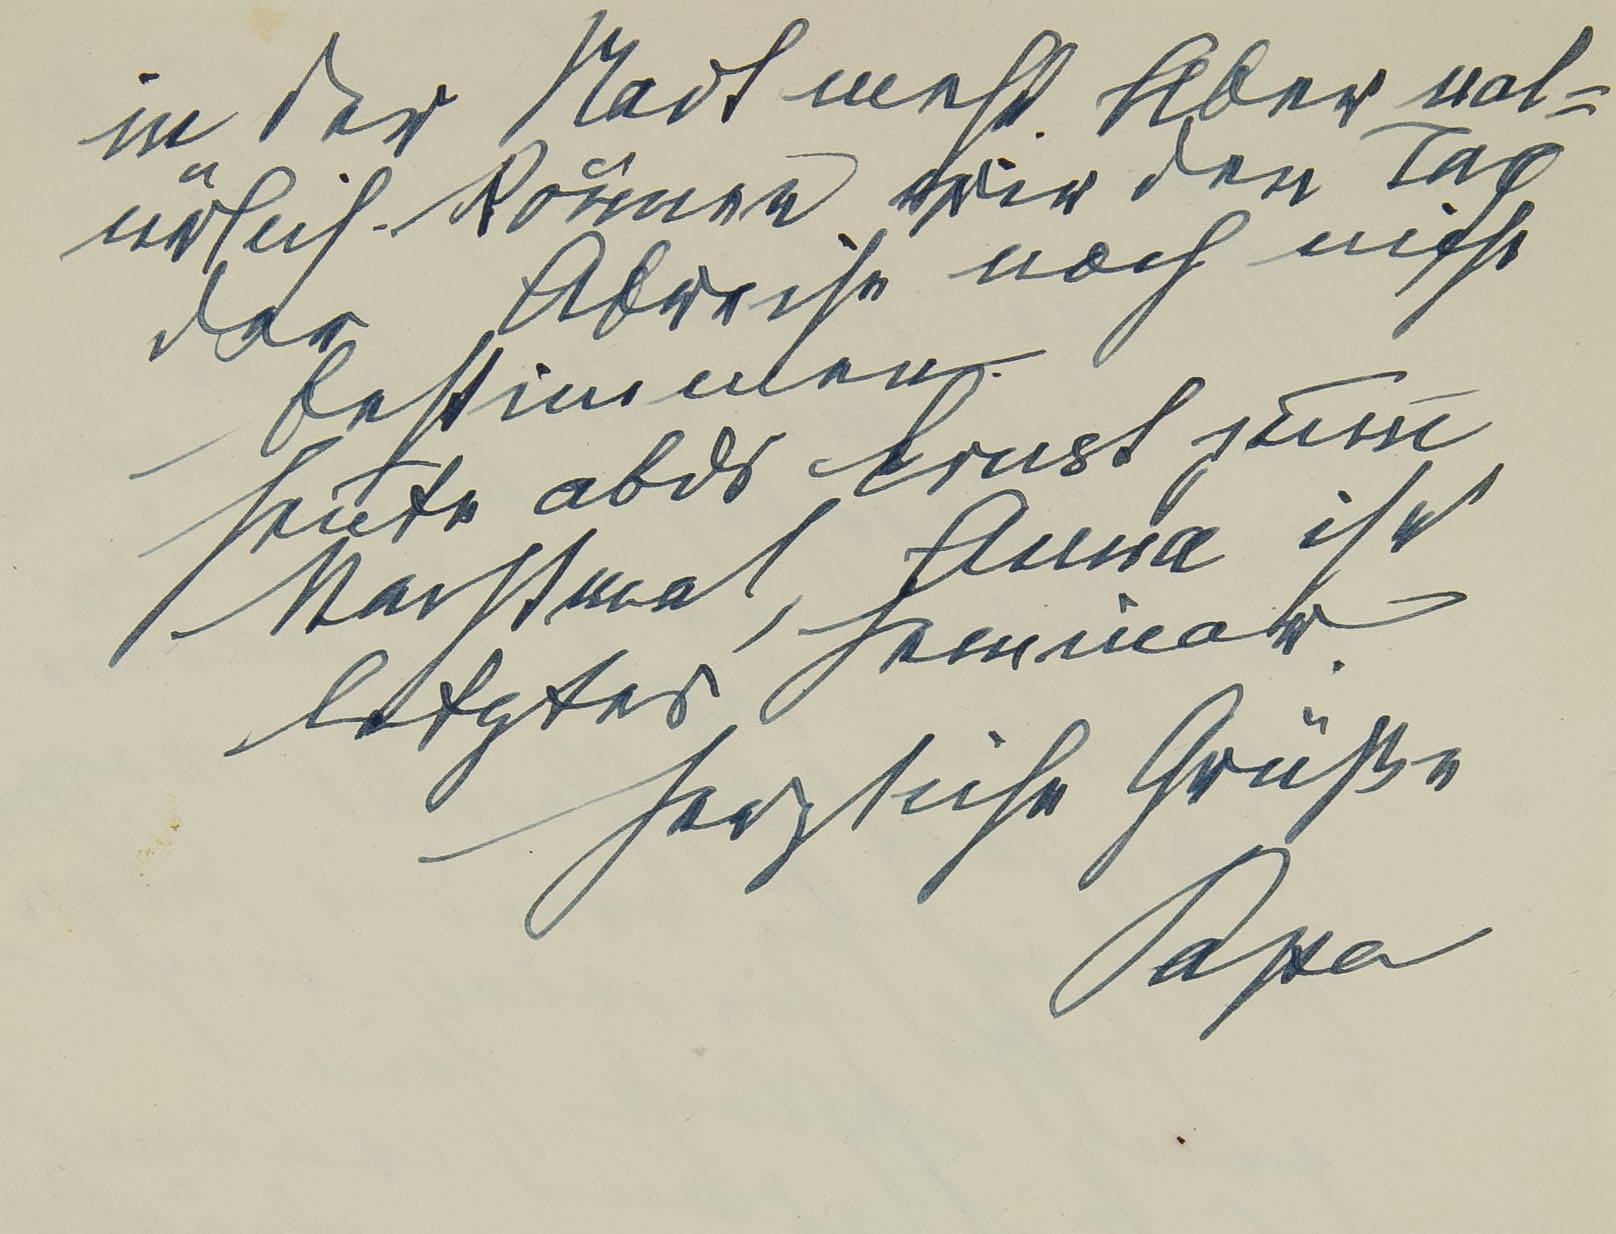 in der Stadt Aber nat=
ürlich können wir den Tag
der Abreise noch nicht
bestimmen.
Heute abds Ernst zum
Nachtmal, Anna ihr
letztes Seminar.
Herzliche Grüße
Papa